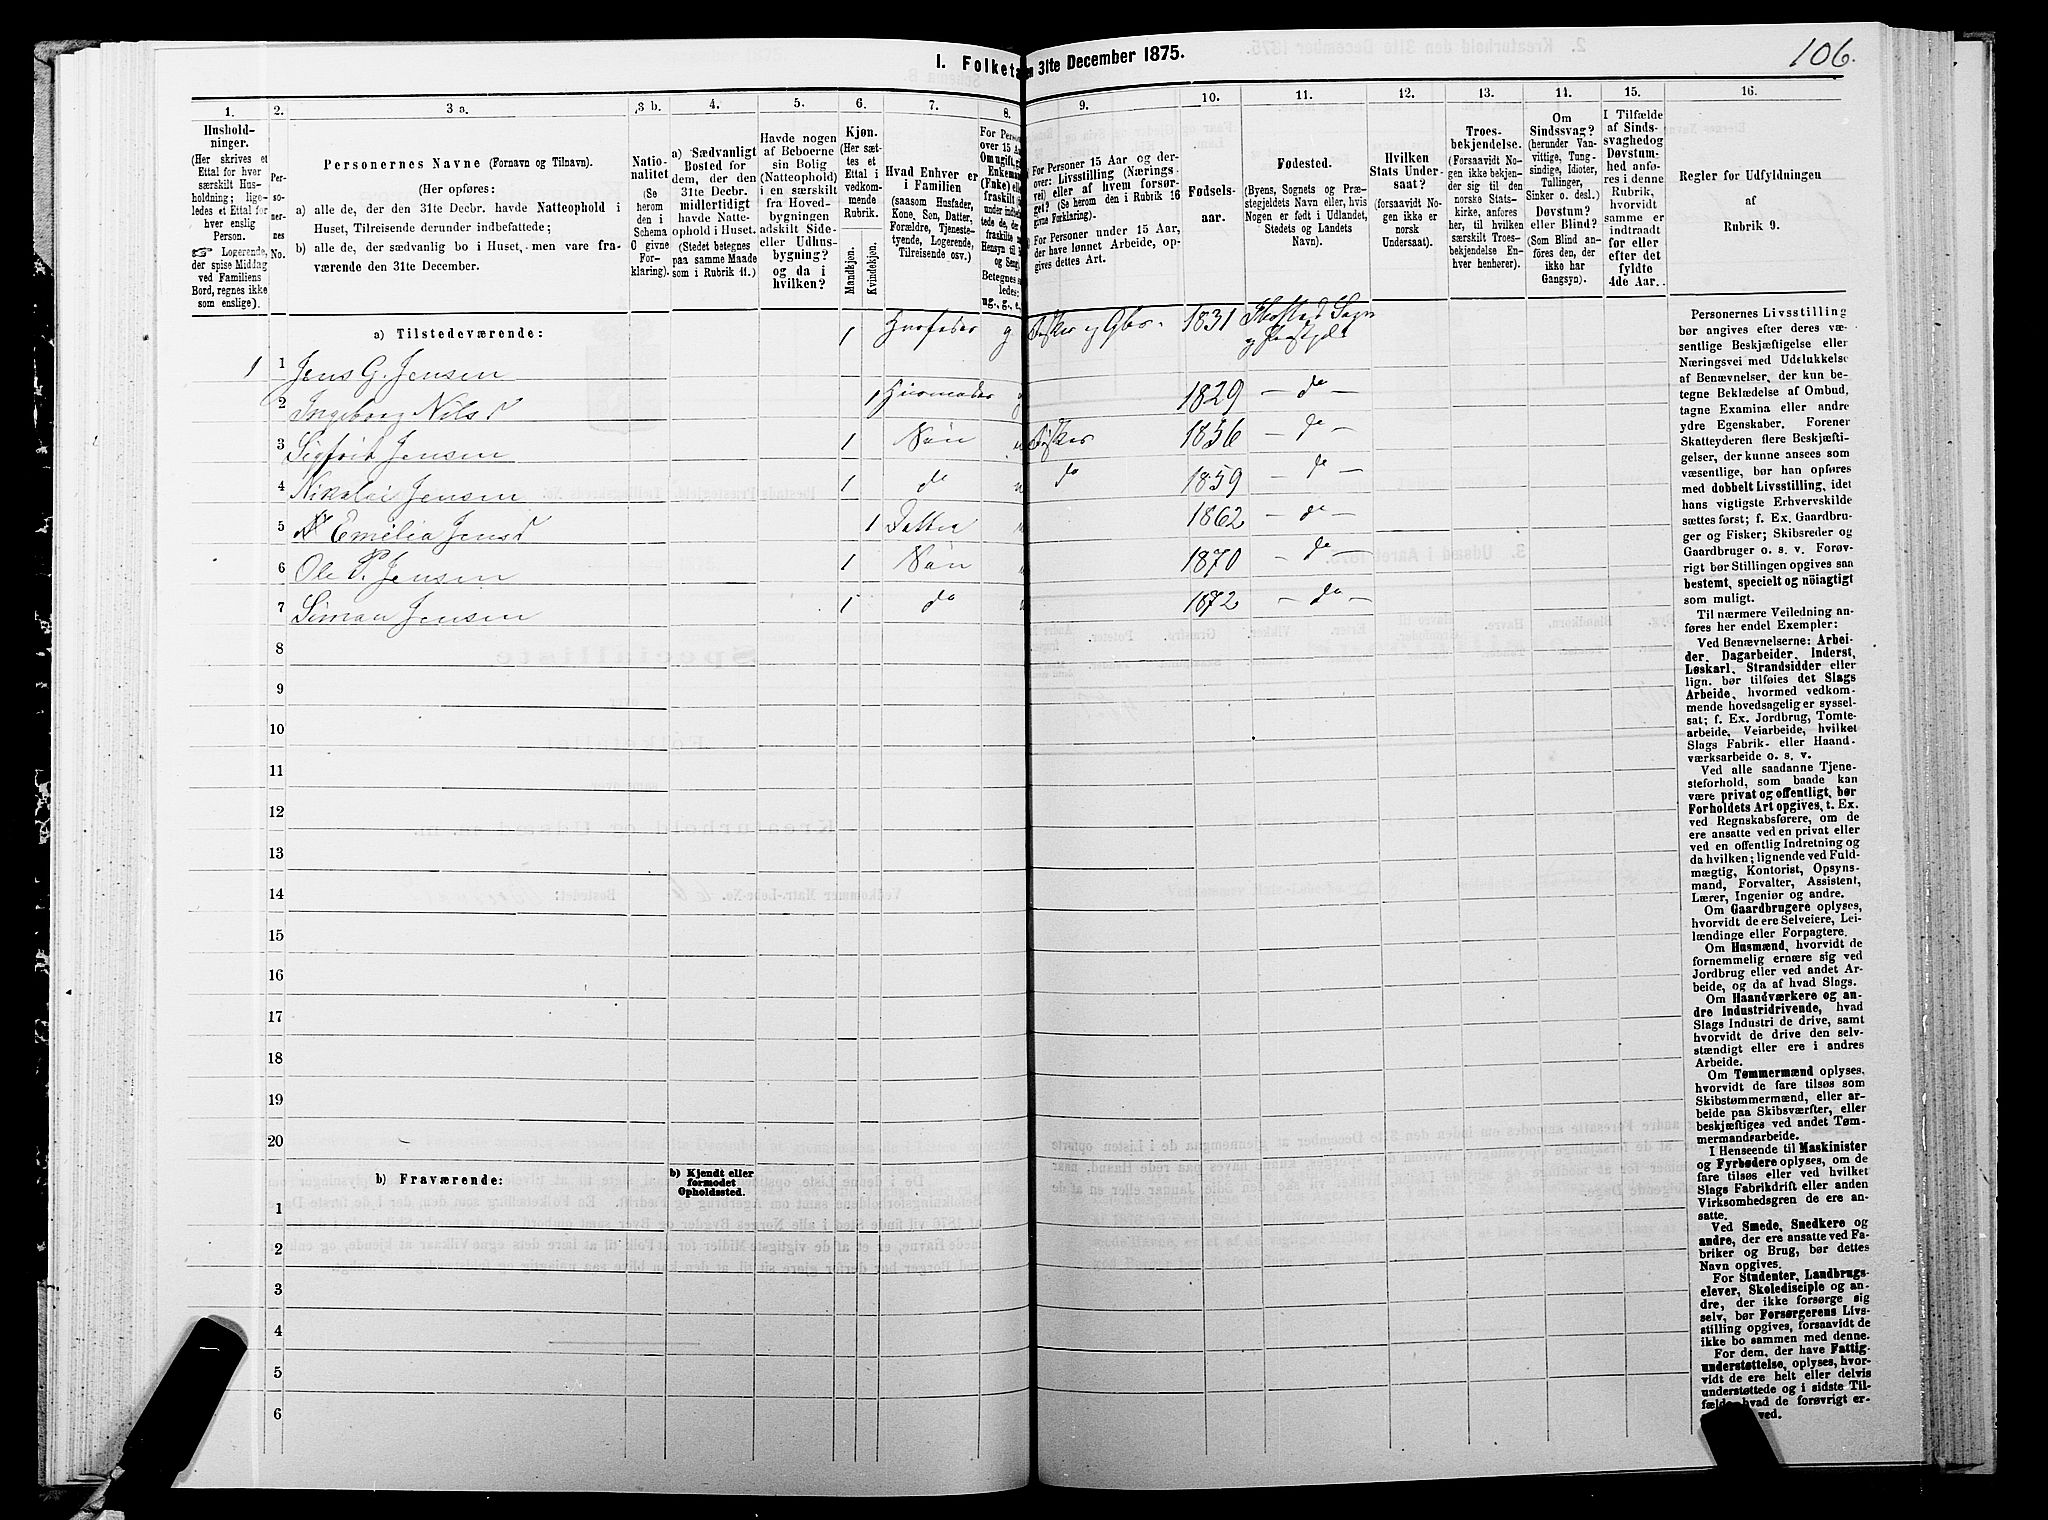 106.
I. Folketa
n 31te December 1875.
1.
Hushold-
ninger.
(Her skrives et
Ettal for hver
særskilt Hus-
holdning; lige-
ledes et Ettal for
hver enslig
Person.
☞ Logerende,
der spise Middag
ved Familiens
Bord, regnes ikke
som enslige).
2.
Per-
so-
ner-
nes
No.
3 a.
Personernes Navne (Fornavn og Tilnavn).
(Her opføres:
a) alle de, der den 31te Decbr. havde Natteophold i
Huset, Tilreisende derunder indbefattede;
b) alle de, der sædvanlig bo i Huset, men vare fra-
værende den 31te December.
3 b.
Natio-
nalitet
(Se
herom
den i
Schema
C givne
For-
klaring).
4.
a) Sædvanligt
Bosted for
dem, der den
31te Decbr.
midlertidigt
havde Natte-
ophold i Huset.
(Stedet betegnes
paa samme Maade
som i Rubrik 11.)
5.
Havde nogen
af Beboerne
sin Bolig
(Natteophold)
i en særskilt
fra Hoved-
bygningen
adskilt Side-
eller Udhus-
bygning?
og da i
hvilken?
6.
Kjøn.
(Her sæt-
tes et
Ettal i
vedkom-
mende
Rubrik.
Mandkjøn.
Kvindekjøn.
7.
Hvad Enhver er
i Familien
(saasom Husfader,
Kone, Søn, Datter,
Forældre, Tjeneste-
tyende, Logerende,
Tilreisende osv.)
8.
For Perso
over 15 Aa
Om ugift, g
Enkeman
(Enke) el
fraskilt
under indb
tede de,
fraskilte
Hensyn til
og Seng.
Betegnes s
ledes:
ug., g., e.
9.
For Personer 15 Aar og der-
over: Livsstilling (Nærings-
vei) eller af hvem forsør-
get? (Se herom den i Rubrik 16
givne Forklaring.)
For Personer under 15 Aar,
der have lønnet Arbeide, op-
gives dettes Art.
10.
Fødsels-
aar.
11.
Fødested.
(Byens, Sognets og Præ-
stegjeldets Navn eller, hvis
Nogen er født i Udlandet,
Stedets og Landets
Navn).
12.
Hvilken
Stats Under-
saat?
(forsaavidt No-
gen ikke er
norsk
Undersaat).
13.
Troes-
bekjendelse.
(Forsaavidt No-
gen ikke bekjen-
der sig til den
norske Stats-
kirke, anføres
her, til hvilken
særskilt Troes-
bekjendelse En-
hver henhører).
14.
Om
Sindssvag?
(herunder Van-
vittige, Tung-
sindige, Idioter,
Tullinger,
Sinker o. desl.)
Døvstum?
eller Blind?
(Som Blind an-
føres den, der
ikke har
Gangsyn).
15.
I Tilfælde
af Sinds-
svaghed og
Døvstum-
hed anfø-
res i denne
Rubrik,
hvorvidt
samme er
indtraadt
før eller
efter det
fyldte
4de Aar.
16.
Regler for Udfyldningen
af
Rubrik 9.
a) Tilstedeværende:
1 Husfader g Fisker og Gbr. 1831
1 1 Jens G. Jensen
2 Ingeborg Nilsd 1 Husmoder 1829 — do —
3 Sigfrid Jensen 1 Søn Fisker 1856 — do —
4 Nikolai Jensen 1 do do 1859 — do —
5 Emelia Jensd 1 Datter 1862 — do —
6 Ole P. Jensen 1 Søn 1870 — do —
7 Simon Jensen 1 do 1872 — do —
8
9
10
11
12
13
14
15
16
17
18
19
20
b) Fraværende:
b) Kjendt eller
formodet
Opholdssted.
1
2
3
4
5
6
Personernes Livsstilling
bør angives efter deres væ-
sentlige Beskjæftigelse eller
Næringsvei med Udelukkelse
af Benævnelser, der kun be-
tegne Beklædelse af Ombud,
tagne Examina eller andre
ydre Egenskaber. Forener
Skatteyderen flere Beskjæfti-
gelser, der kunne ansees som
væsentlige, bør han opføres
med dobbelt Livsstilling, idet
hans vigtigste Erhvervskilde
sættes først; f. Ex. Gaardbru-
ger og Fisker; Skibsreder og
Gaardbruger o. s. v. Forøv-
rigt bør Stillingen opgives saa
bestemt, specielt og nöiagtigt
som muligt.
Til nærmere Veiledning an-
føres her endel Exempler:
Ved Benævnelserne: Arbei-
der, Dagarbeider, Inderst,
Løskarl, Strandsidder eller
lign. bør tilføies det Slags
Arbeide, hvormed vedkom-
mende hovedsagelig er syssel-
sat; f. Ex. Jordbrug, Tomte-
arbeide, Veiarbeide, hvilket
Slags Fabrik- eller Haand-
værksarbeide o. s. v.
Ved alle saadanne Tjene-
steforhold, som baade kan
være privat og offentligt, bør
Forholdets Art opgives, t. Ex.
ved Regnskabsførere, om de
ere ansatte ved en privat eller
ved en offentlig Indretning og
da hvilken; lignende ved Fuld-
mægtig, Kontorist, Opsyns-
mand, Forvalter, Assistent,
Lærer, Ingeniør og andre.
Om Gaardbrugere oplyses,
hvorvidt de ere Selveiere, Lei-
lændinge eller Forpagtere.
Om Husmænd, hvorvidt de
fornemmelig ernære sig ved
Jordbrug eller ved andet Ar-
beide, og da af hvad Slags.
Om Haandværkere og an-
dre Industridrivende, hvad
Slags Industri de drive, samt
hvorvidt de drive den selv-
stændigt eller ere i andres
Arbeide.
Om Tømmermænd oplyses,
hvorvidt de fare tilsøs som
Skibstømmermænd, eller ar-
beide paa Skibsværfter, eller
beskjæftiges ved andet Tøm-
mermandsarbeide.
I Henseende til Maskinister
og Fyrbødere oplyses, om de
fare tilsøs eller ved hvilket
Slags Fabrikdrift eller anden
Virksomhedsgren de ere an-
satte.
Ved Smede, Snedkere og
andre, der ere ansatte ved Fa-
briker og Brug, bør dettes
Navn opgives.
For Studenter, Landbrugs-
elever, Skoledisciple og an-
dre, der ikke forsørge sig
selv, bør Forsørgerens Livs-
stilling opgives, forsaavidt de
ikke bo sammen med denne.
For dem, der have Fattig-
understøttelse, oplyses, hvor-
vidt de ere helt eller delvis
understøttede og i sidste Til-
fælde hvad de forøvrigt er-
ved.